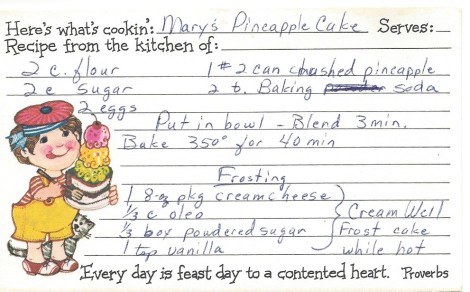 Here's what's cookin': Mary's Pineapple Cake Serves:
Recipe from the kitchen of:
2 c. flour 1 #2 can crushed pineapple
2 c Sugar 2 t. Baking powder soda
2 eggs
Put in bowl - Blend 3 min.
Bake 350° for 40 min
Frosting
1 8-oz pkg creamcheese
1/3 c oleo Cream Well
1/3 box powdered sugar Frost cake
1 tsp vanilla while hot
Every day is feast day to a contented heart. Proverbs